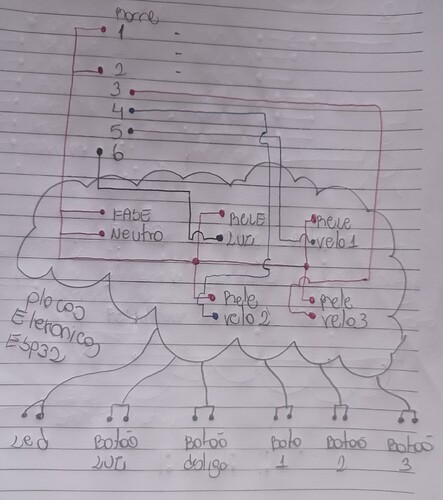 Borne
1 -
-
2 -
3
4
5
6
FASE
Neutro
RELE
LUZ
Rele
velo1
Rele
velo 2
Rele
velo3
placas
Eletronicas
Esp32
Led
Botão
LUZ
Botão
desliga
Botão
1
Botão
2
Botão
3